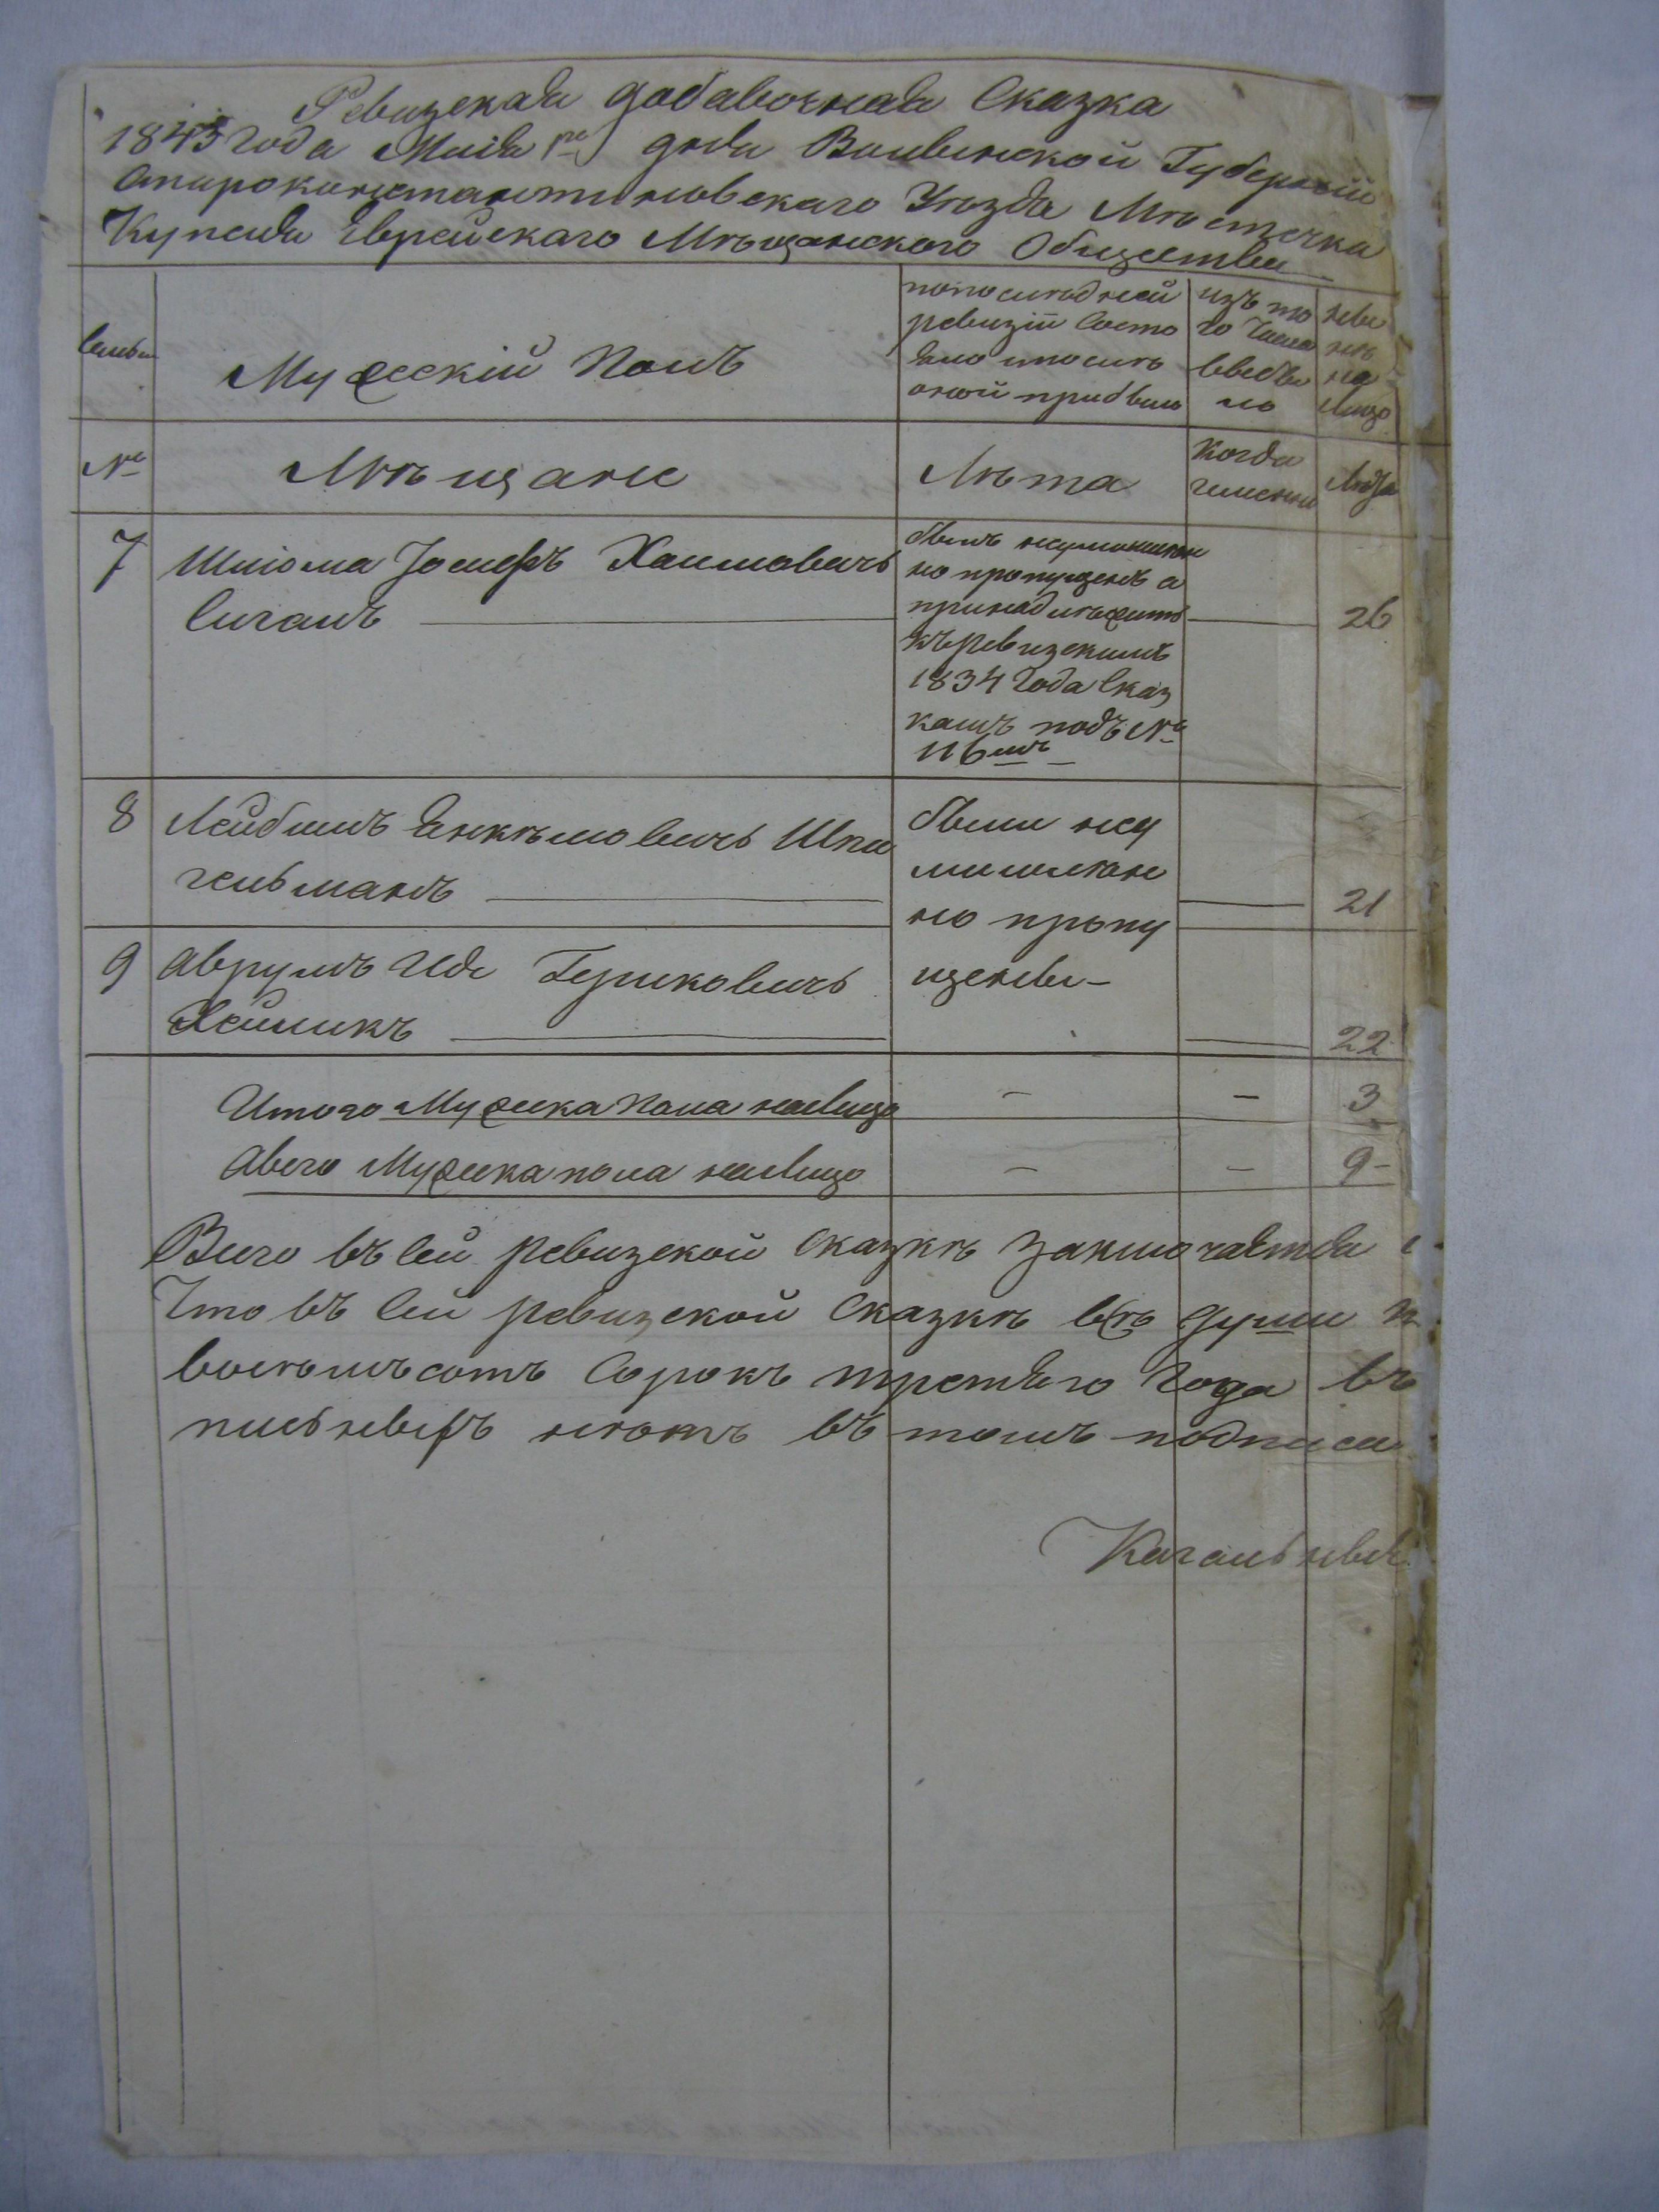 Ревизская добавочная Сказка
1843 года Маія 1го дня Волынской Губерніи
Старокинстантиновскаго Уѣзда Мѣстечка
Купеля Еврейскаго Мѣщанского Общества
Семьи
Мужескій Полъ
попослѣдней
ревизіи состо
яло ипослѣ
оной прибыло
изъ то
го числа
выбы
ло
ныне
на
лицо
№
Мѣщане
Лѣта
когда
именно
Лѣта
7
Шліома Іосифъ Хаимовичъ
Сигалъ
былъ неумышлен
но пропущенъ а
принадлѣжитъ
къ ревизскимъ
1834 года сказ
камъ подъ №
116мъ
26
8
Лейбишъ Янкѣловичъ Шпи
гельманъ
были неу
мышлен
но пропу
щены
21
9
Аврумъ Гершковичъ
22
Итого Мужска пола налицо
-
-
3
Авсго Мужска пола налицо
-
-
9-
Всего въ сей ревизской сказкѣ заключается
Что въ сей ревизской сказкѣ всѣ души
восѣмъсотъ сорокъ третяго года въ
нѣтъ въ томъ подписа
Кагальные